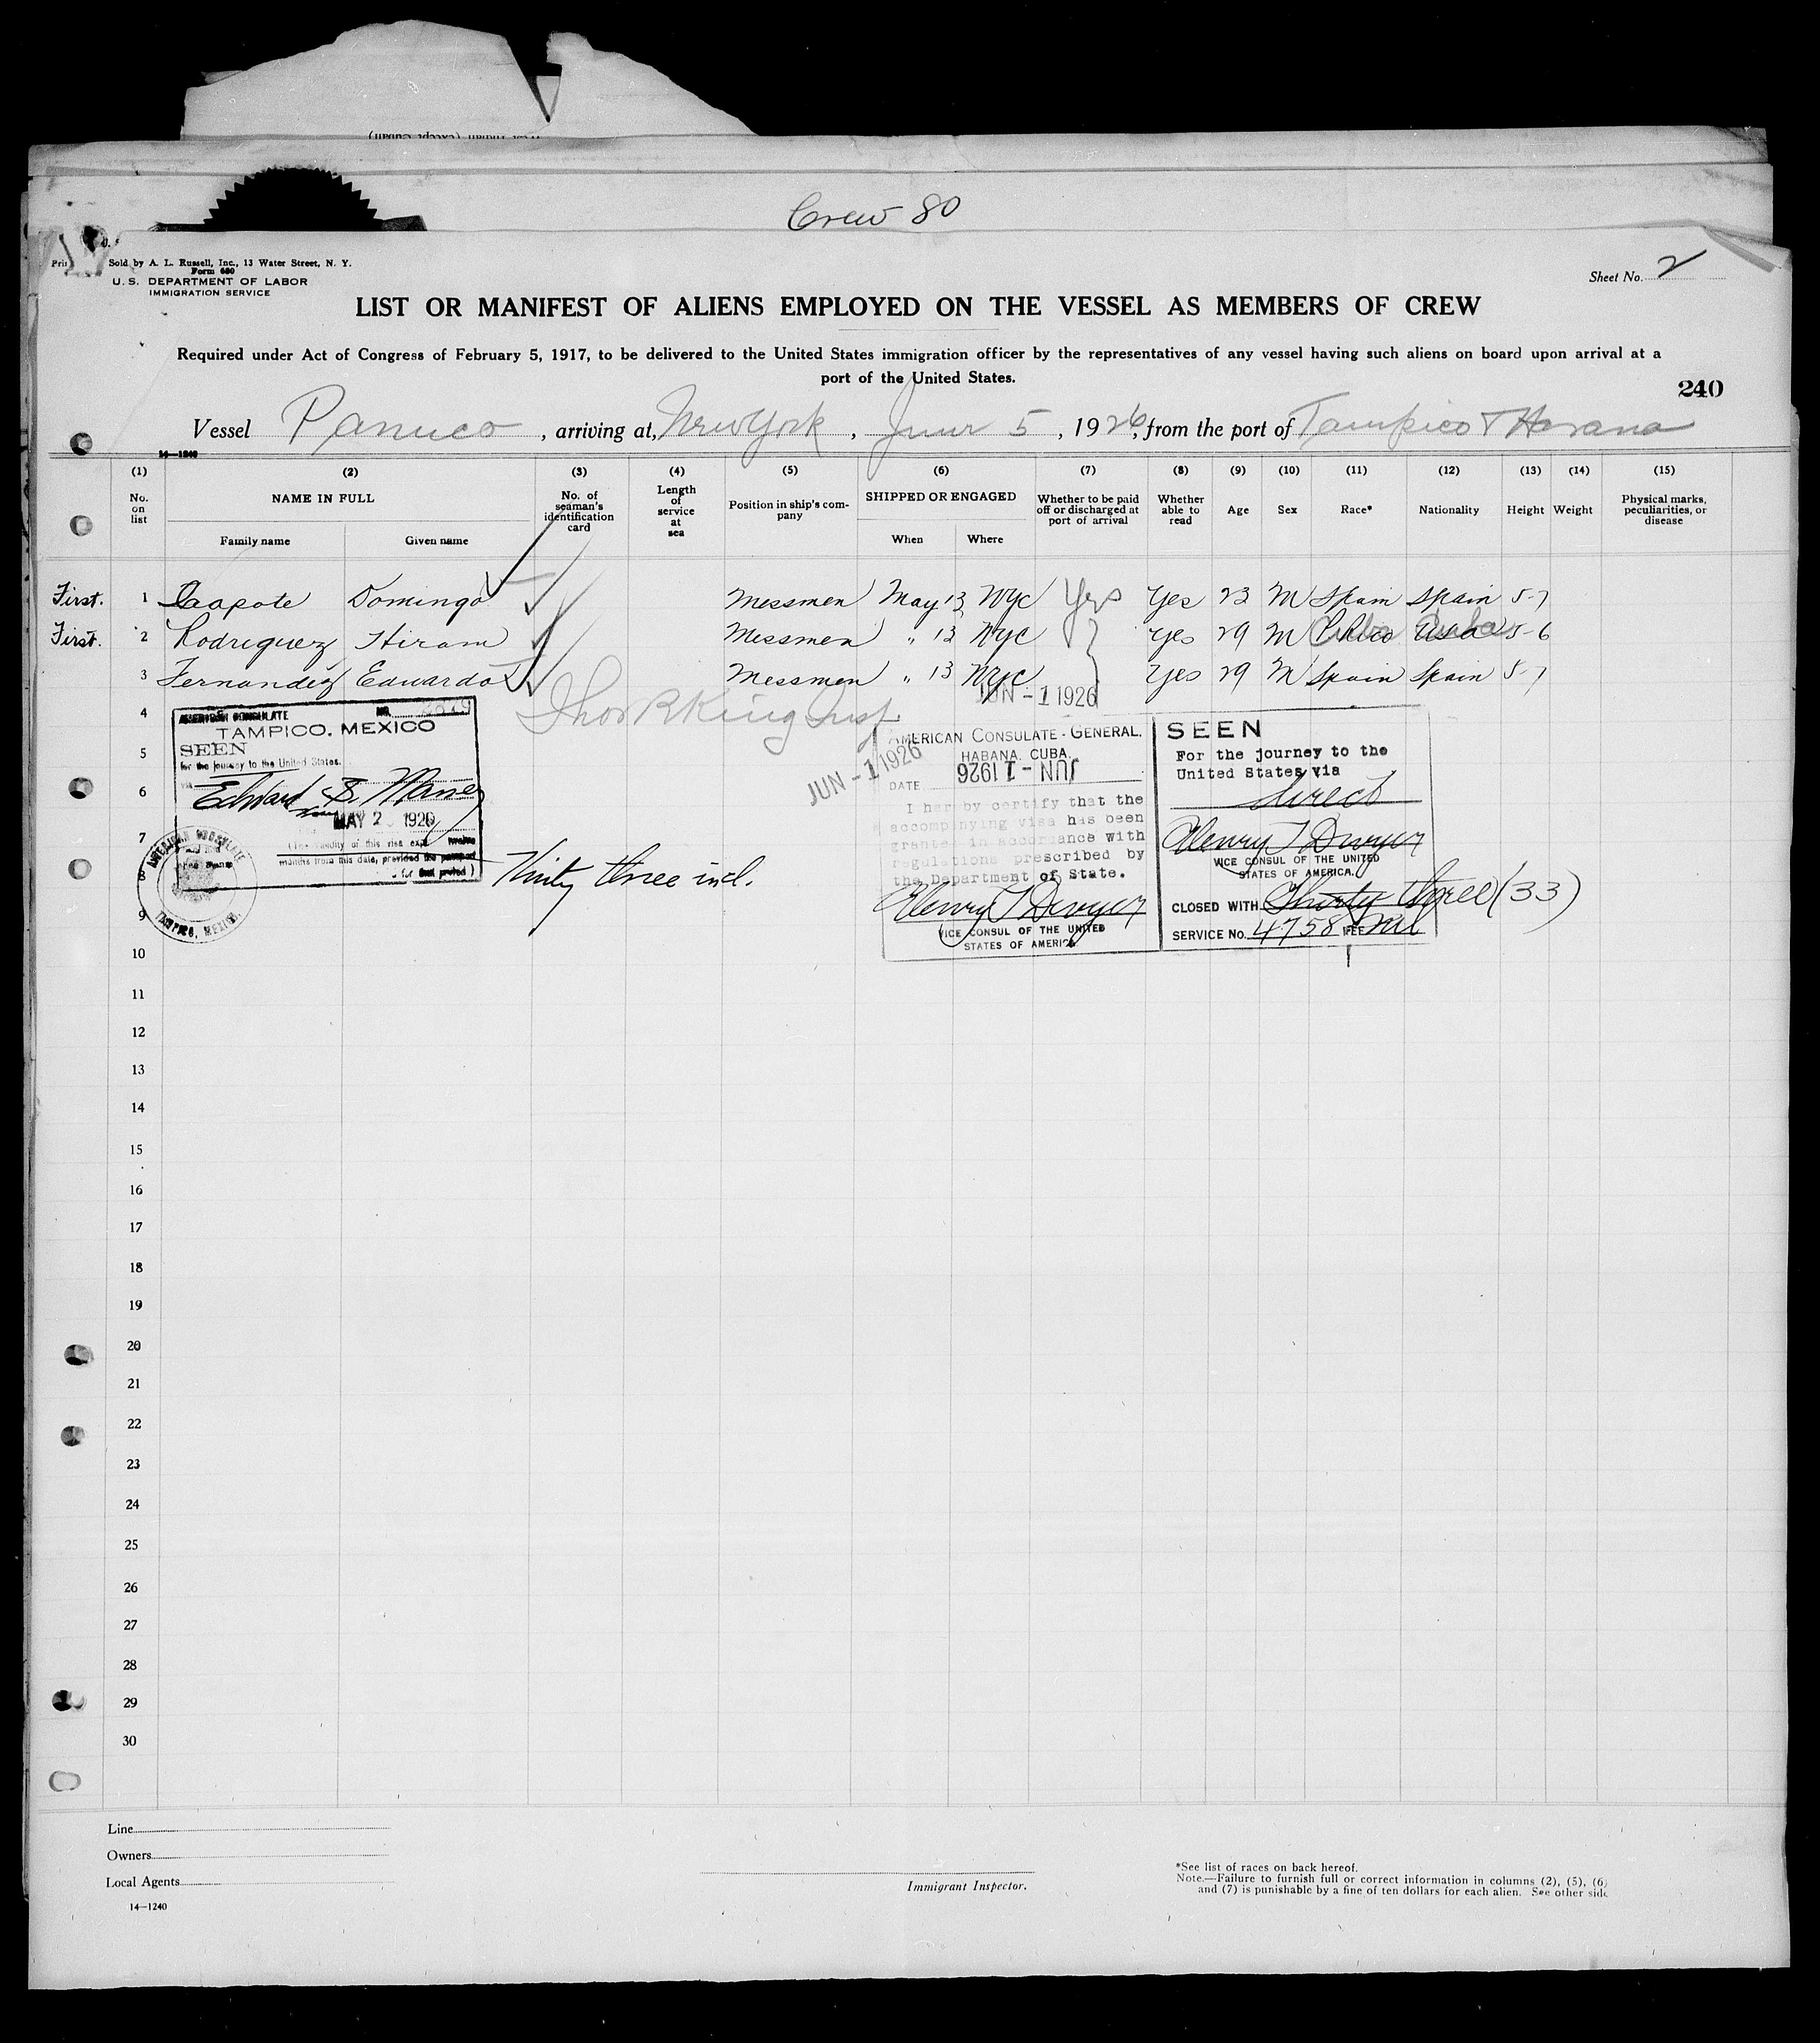 Crew 80
Sold by A. L. Russell, Inc., 13 Water Street, N. Y.
Form 680
U. S. DEPARTMENT OF LABOR
IMMIGRATION SERVICE
Sheet No. 2
LIST OR MANIFEST OF ALIENS EMPLOYED ON THE VESSEL AS MEMBERS OF CREW
Required under Act of Congress of February 5, 1917, to be delivered to the United States immigration officer by the representatives of any vessel having such aliens on board upon arrival at a
port of the United States.
240
Vessel Panuco, arriving at, New York, June 5, 1926, from the port of Tampico & Havana
14—1240
(1) (2) (3) (4) (5) (6) (7) (8) (9) (10) (11) (12) (13) (14) (15)
No. on list
NAME IN FULL
Family name Given name
No. of seaman's identification card
Length of service at sea
Position in ship's company
SHIPPED OR ENGAGED
When Where
Whether to be paid off or discharged at port of arrival
Whether able to read
Age
Sex
Race*
Nationality
Height
Weight
Physical marks, peculiarities, or disease
First. 1 Capote Domingo Messmen May 13 NYC Yes Yes 23 M Spain Spain 5-7
First. 2 Rodriguez Hiram Messmen " 13 NYC Yes 29 M P Rico Cuba USA Cuba 5-6
3 Fernandez Eduardo Messmen " 13 NYC Yes 29 M Spain Spain 5-7
JUN -1 1926
4
AMERICAN CONSULATE NO.
TAMPICO, MEXICO
SEEN
for the journey to the United States.
via
Edward S. Maney
MAY 2 1926
(The validity of this visa expires twelve
months from this date, provided the passport
for that period)
AMERICAN CONSULATE
TAMPICO, MEXICO.
Thirty three incl.
Thos R King Insp
JUN -1 1926
AMERICAN CONSULATE-GENERAL,
HABANA, CUBA.
DATE JUN -1 1926
I hereby certify that the
accompanying visa has been
granted in accordance with
regulations prescribed by
the Department of State.
Henry T Dwyer
VICE CONSUL OF THE UNITED
STATES OF AMERICA.
SEEN
For the journey to the
United States via
direct
Henry T Dwyer
VICE CONSUL OF THE UNITED
STATES OF AMERICA.
CLOSED WITH Thirty three (33)
SERVICE No. 4758 FEE Nil
5
6
7
8
9
10
11
12
13
14
15
16
17
18
19
20
21
22
23
24
25
26
27
28
29
30
Line
Owners
Local Agents
14—1240
Immigrant Inspector.
*See list of races on back hereof.
Note.—Failure to furnish full or correct information in columns (2), (5), (6)
and (7) is punishable by a fine of ten dollars for each alien. See other side